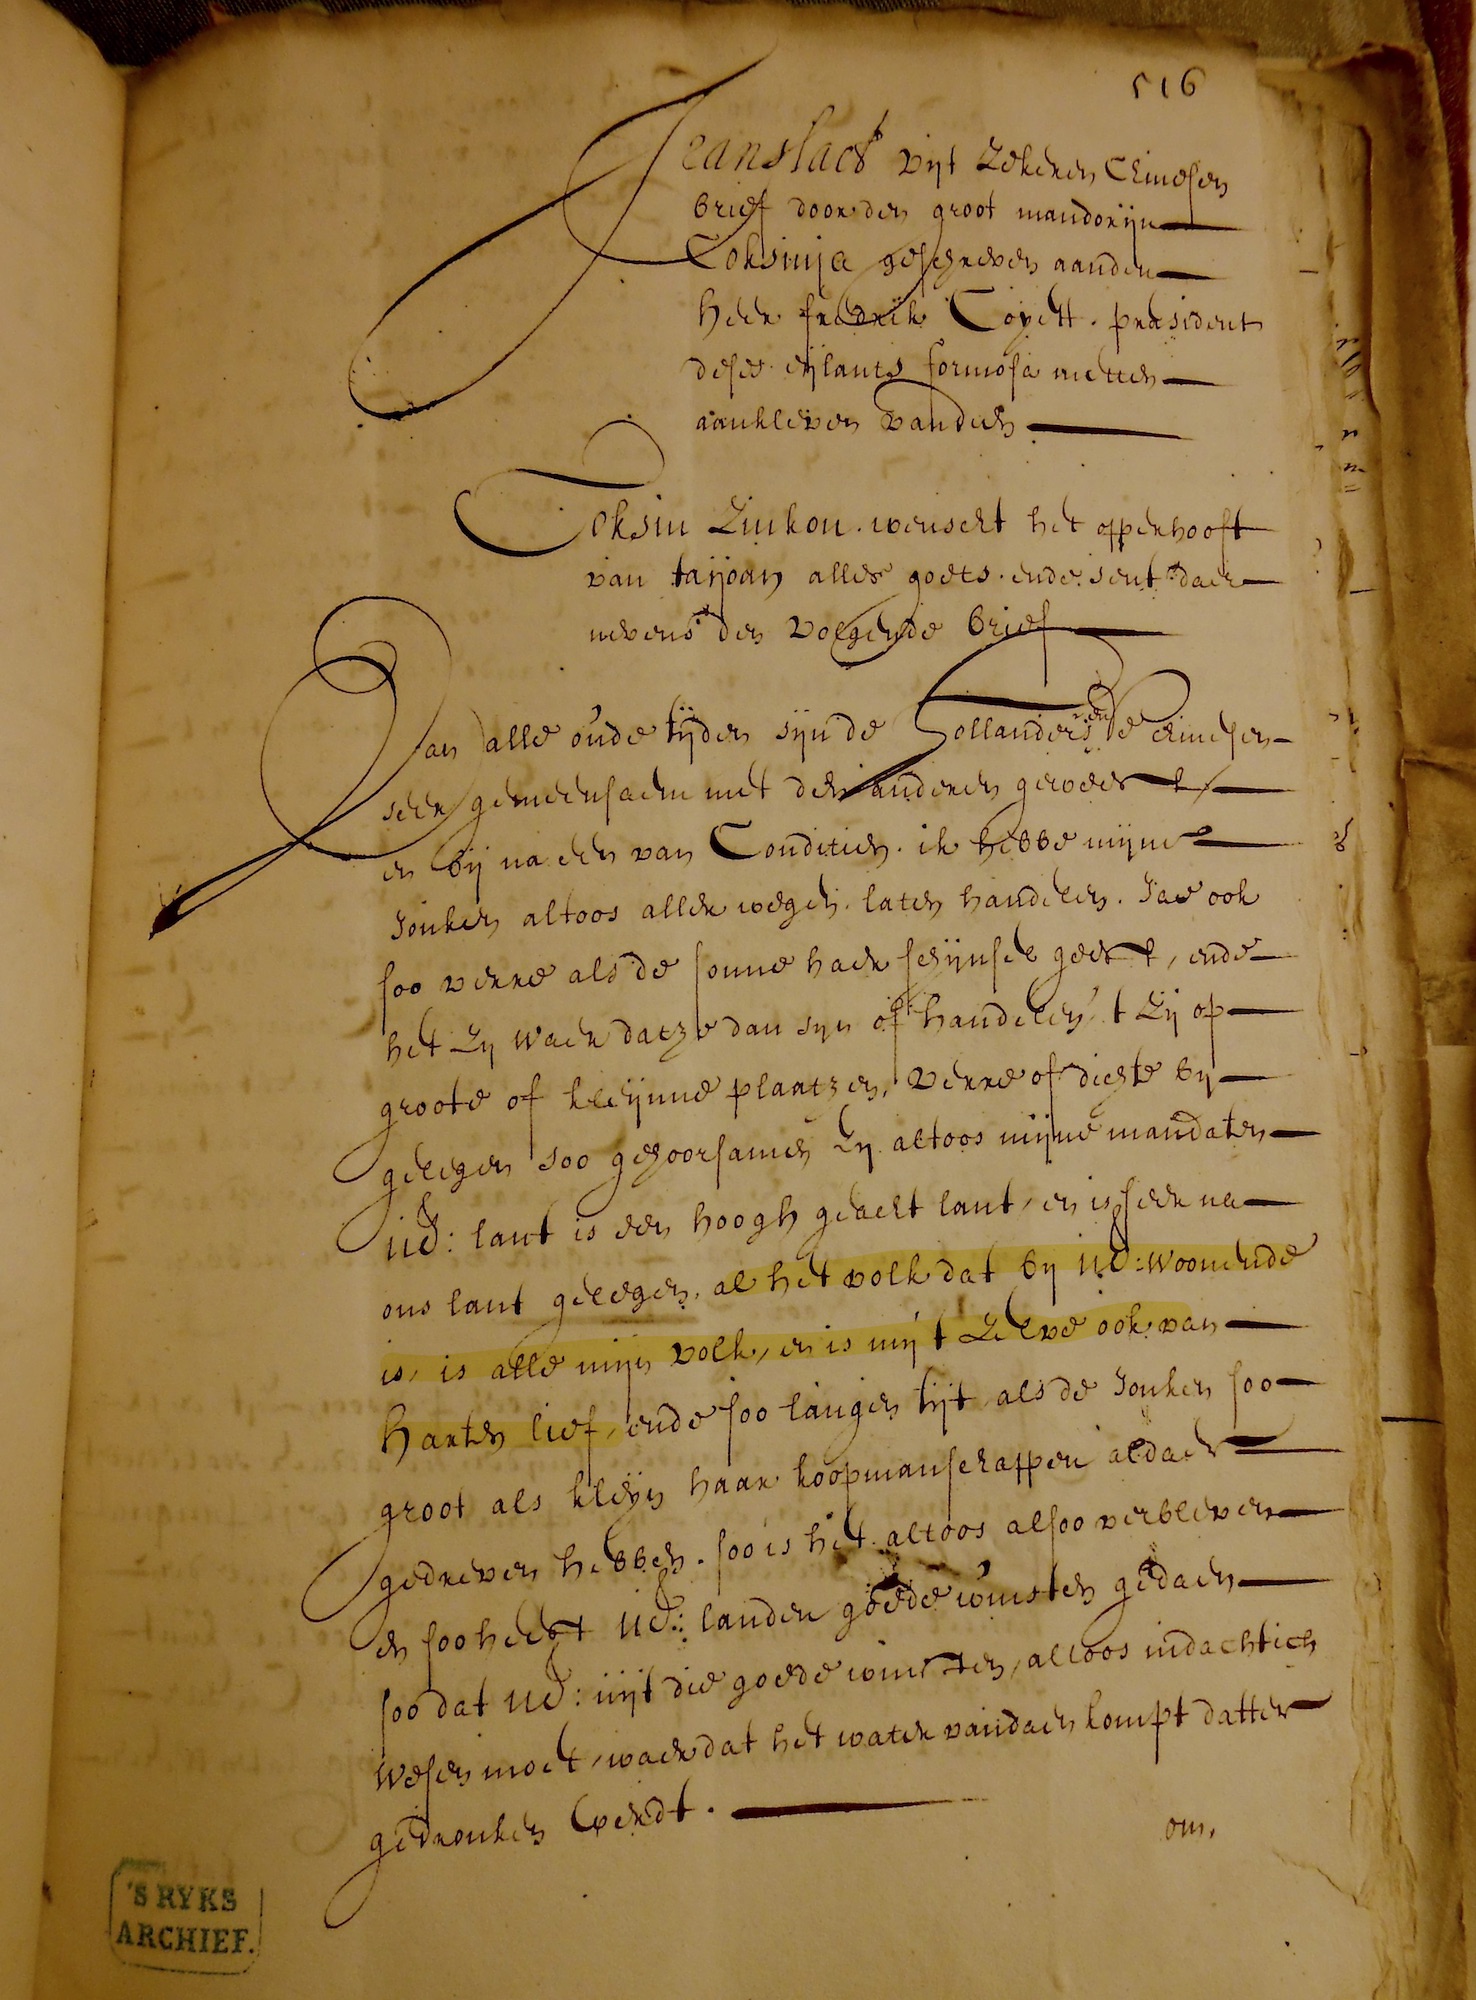 516
Translact uijt zekeren Chinesen
brief door den groot mandorijn
Coksinja geschreven aanden
heer fredrik Coyett. president
deses eijlants formosa metten
aankleven vandien
Coksin Zinkon. wenscht het opperhooft
van taijoan alles goets. ende sent daer
nevens den volgende brief
Van alle oude tijden sijn de Hollanders en de chinesen
seer gemeensaem met den anderen geweest
en bij na een van Conditien. ik hebbe mijne
Jonken altoos aller wegen. laten handelen. Jae ook
soo verre als de sonne haer schijnsel geeft, ende
het zy waer datze dan syn of handelen, t zy op
groote of kleijnne plaatzen, verre of dichte by
gelegen soo gehoorsamen zy altoos mijne mandaten
UE: lant is een hoogh geacht lant, en is seer na
ons lant gelegen, al het volk dat by UE: woonende
is, is alle mijn volk, en is mij t zelve ook van
harten lief, ende soo langen tijt als de Jonken soo
groot als kleyn haar koopmanschappen aldaer
gedreven hebben. soo is het altoos alsoo verbleven
en soo heeft UE: landen goede winsten gedaen
soo dat UE: uijt die goede winsten, altoos indachtich
wesen moet, waer dat het water vandaen kompt datter
gedronken werdt.
om.
'S RYKS
ARCHIEF.